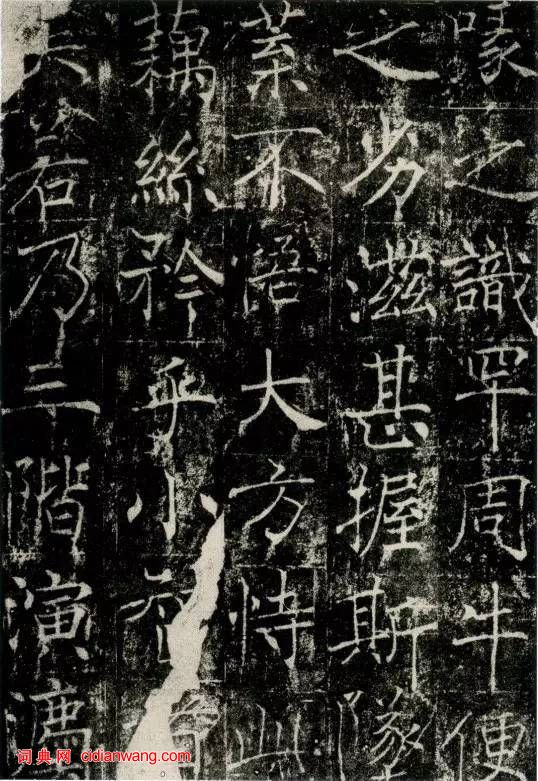 喙之識罕周牛
之劣滋甚握斯墜
葉不悟大方恃此
藕絲矜乎小智
矣若乃三階演
词典网 cidianwang.com